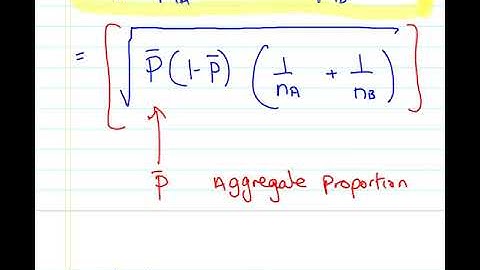 = [ √( p̄ (1-p̄) ( 1/nA + 1/nB ) ) ]
p̄ Aggregate Proportion